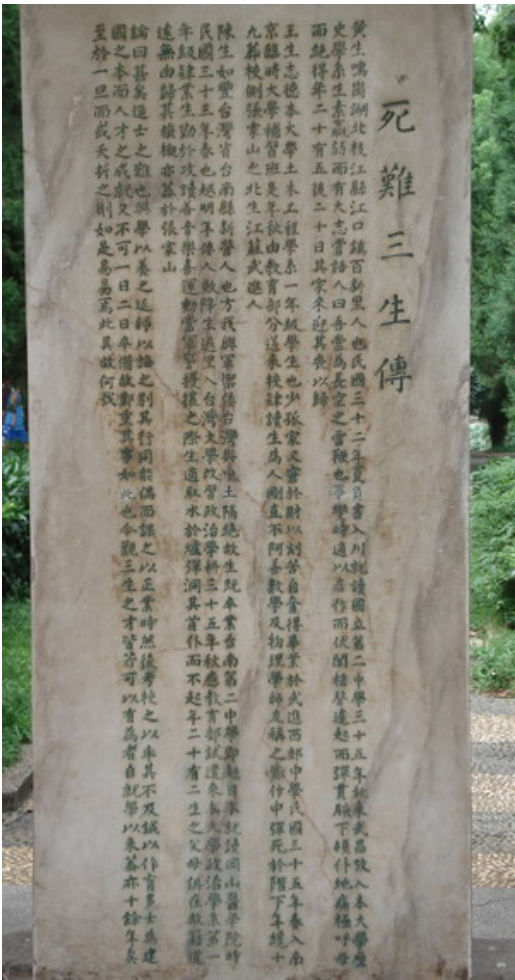 死難三生傳
黃生鳴崗湖北枝江縣江口鎮百新里人也民國三十二年夏負書入川就讀國立第二中學三十五年秋來武昌攷入本大學歷
史學系生素羸弱而有大志嘗語人曰吾當為長空之雷鞭也事變時適以盥作而伏聞槍聲遽起而彈貫脇下傾仆地痛極呼母
而絕得年二十有五後二十日其家來迎其喪以歸
王生志德本大學土木工程學系一年級學生也少孤家又窘於財以刻苦自奮得畢業於武進西郊中學民國三十五年春入南
京臨時大學補習班是年秋由教育部分送來校肄讀生為人剛直不阿善數學及物理學師友稱之變作中彈死於階下年纔十
九葬校側張家山之北生江蘇武進人
陳生如豐台灣省台南縣新營人也方我與軍禦倭台灣與中土隔絕故生既卒業台南第二中學即赴日本就讀岡山醫學院時
民國三十三年春也越明年倭人敗降生返里入台灣大學改習政治學科三十五年秋應教育部試送來本大學政治學系第一
年級肄業生勤於攻讀善音樂喜運動當軍警搜攫之際生適取水於爐彈洞其首仆而不起年二十有二生之父母俱在故籍遼
遠無由歸其櫬櫬亦葬於張家山
論曰甚矣造士之難也興學以養之延師以誨之別其行同能偶而課之以正業時然後考校之以率其不及誠以作育多士為建
國之本而人才之成就又不可一日二日卒備故鄭重其事如此也今觀三生之才皆若可以有為者自就學以來蓋亦十餘年矣
至於一旦而或夭折之則如是易易焉此其故何哉